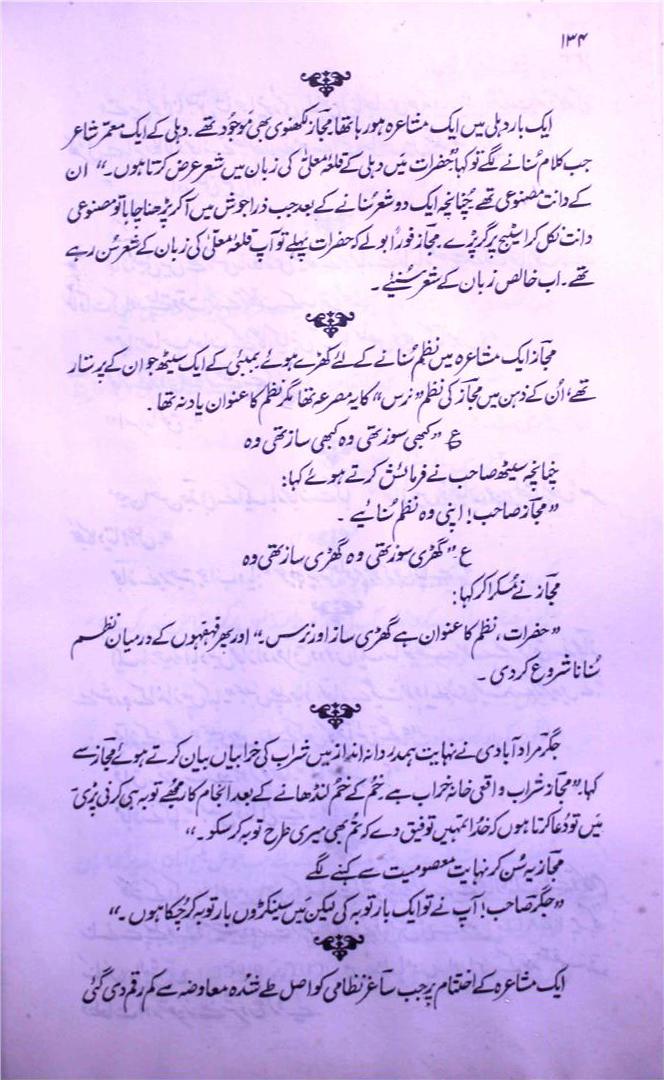 ۱۳۴
ایک بار دہلی میں ایک مشاعرہ ہو رہا تھا مجاز لکھنوی بھی موجود تھے۔ دہلی کے ایک معمر شاعر
جب کلام سنانے لگے تو کہا "حضرات میں دہلی کے قلعہ معلیٰ کی زبان میں شعر عرض کرتا ہوں۔" ان
کے دانت مصنوعی تھے چنانچہ ایک دو شعر سنانے کے بعد جب ذرا جوش میں آ کر پڑھنا چاہا تو مصنوعی
دانت نکل کر اسٹیج پر گر پڑے۔ مجاز فوراً بولے کہ حضرات پہلے تو آپ قلعہ معلیٰ کی زبان کے شعر سن رہے
تھے۔ اب خالص زبان کے شعر سنیئے۔
مجاز ایک مشاعرہ میں نظم سنانے کے لئے کھڑے ہوئے بمبئی کے ایک سیٹھ جو ان کے پرستار
تھے، اُن کے ذہن میں مجاز کی نظم "نرس" کا یہ مصرعہ تھا مگر نظم کا عنوان یاد نہ تھا۔
ع "کبھی سوز تھی وہ کبھی ساز تھی وہ
چنانچہ سیٹھ صاحب نے فرمائش کرتے ہوئے کہا:
"مجاز صاحب! اپنی وہ نظم سنائیے۔
ع "گھڑی سوز تھی وہ گھڑی ساز تھی وہ
مجاز نے مسکرا کر کہا:
"حضرات، نظم کا عنوان ہے گھڑی ساز اور نرس۔" اور پھر قہقہوں کے درمیان نظم
سنانا شروع کر دی۔
جگر مراد آبادی نے نہایت ہمدردانہ انداز میں شراب کی خرابیاں بیان کرتے ہوئے مجاز سے
کہا۔ "مجاز شراب واقعی خانہ خراب ہے خُم کے خُم لنڈھانے کے بعد انجام کار مجھے توبہ ہی کرنی پڑی۔
میں تو دُعا کرتا ہوں کہ خُدا تمہیں توفیق دے کہ تُم بھی میری طرح توبہ کر سکو۔"
مجاز یہ سُن کر نہایت معصومیت سے کہنے لگے
"جگر صاحب! آپ نے تو ایک بار توبہ کی لیکن میں سینکڑوں بار توبہ کر چکا ہوں۔"
ایک مشاعرہ کے اختتام پر جب ساغر نظامی کو اصل طے شدہ معاوضہ سے کم رقم دی گئی